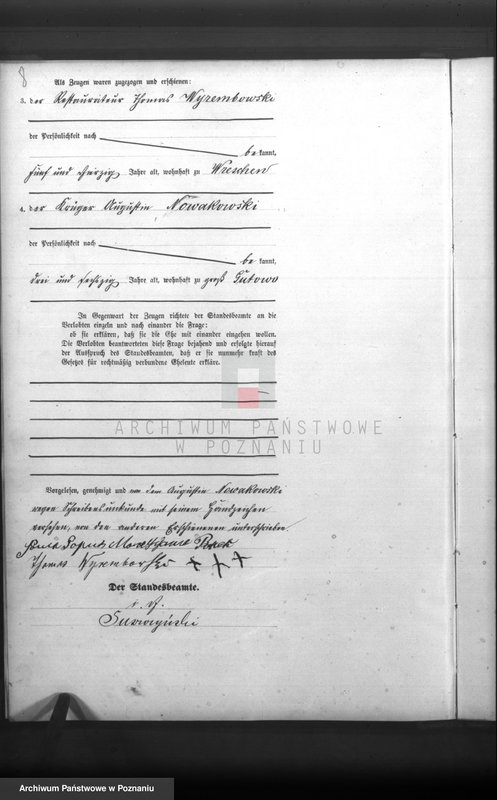 8
Als Zeugen waren zugezogen und erschienen:
3. der Restaurateur Thomas Wyrembowski
der Persönlichkeit nach
be kannt,
fünf und vierzig Jahre alt, wohnhaft zu Wreschen
4. der Krüger Augustin Nowakowski
der Persönlichkeit nach
be kannt,
drei und sechszig Jahre alt, wohnhaft zu groß Gutowo
In Gegenwart der Zeugen richtete der Standesbeamte an die
Verlobten einzeln und nach einander die Frage:
ob sie erklären, daß sie die Ehe mit einander eingehen wollen.
Die Verlobten beantworteten diese Frage bejahend und erfolgte hierauf
der Ausspruch des Standesbeamten, daß er sie nunmehr kraft des
Gesetzes für rechtmäßig verbundene Eheleute erkläre.
ARCHIWUM PAŃSTWOWE
W POZNANIU
Vorgelesen, genehmigt und von dem Augustin Nowakowski
wegen Schreibensunkunde mit seinem Handzeichen
versehen, von den anderen Erschienenen unterschrieben
Thomas Wyrembowski + + +
Der Standesbeamte.
Archiwum Państwowe w Poznaniu